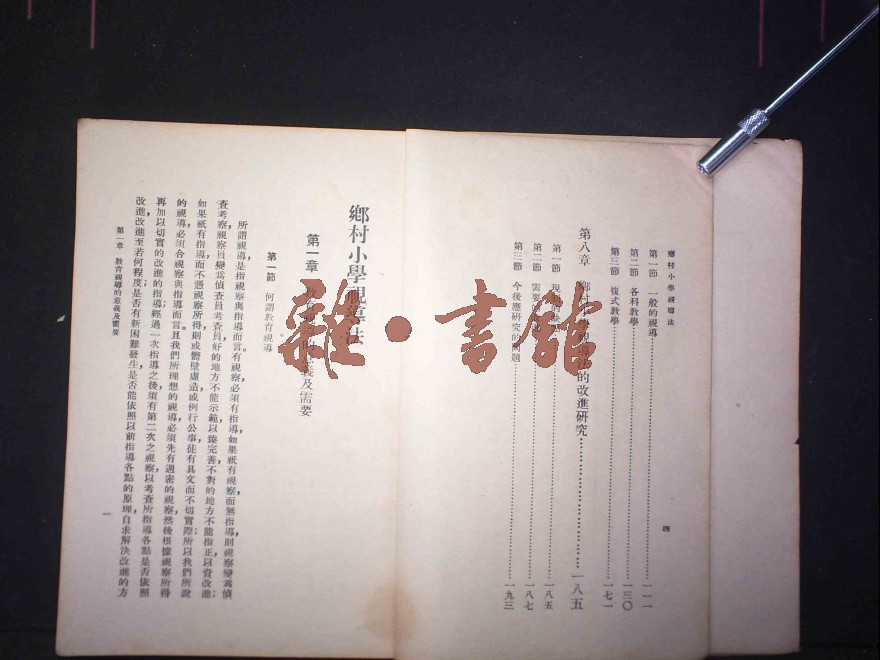 鄉村小學視導法
第一節 一般的視導 一一一
第二節 各科教學 一三〇
第三節 複式教學 一七一
第八章 鄉村小學視導法的改進研究 一八五
第一節 現 一八五
第二節 需要 一八七
第三節 今後應研究的問題 一九三
四
鄉村小學視導法
第一章 教育視導的意義及需要
第一節 何謂教育視導
所謂視導，是指視察與指導而言。有視察，必須有指導，如果祇有視察而無指導，則視察變爲偵
查考察，視察員變爲偵查員考查員，好的地方不能示範，以臻完善，不對的地方不能指正，以資改進；
如果祇有指導而不憑視察所得，則或嚮壁虛造，或例行公事，徒有具文而不切實際。所以我們所說
的視導，必須合視察與指導而言。且我們所理想的視導，必須先有週密的視察，然後根據視察所得，
再加以切實的改進的指導；經過一次指導之後，須有第二次之視察，以考查所指導各點，是否依照
改進，改進至若何程度；是否有新困難發生，是否能依照以前指導各點的原理，自求解決改進的方
第一章 教育視導的意義及需要
一
雜·書館